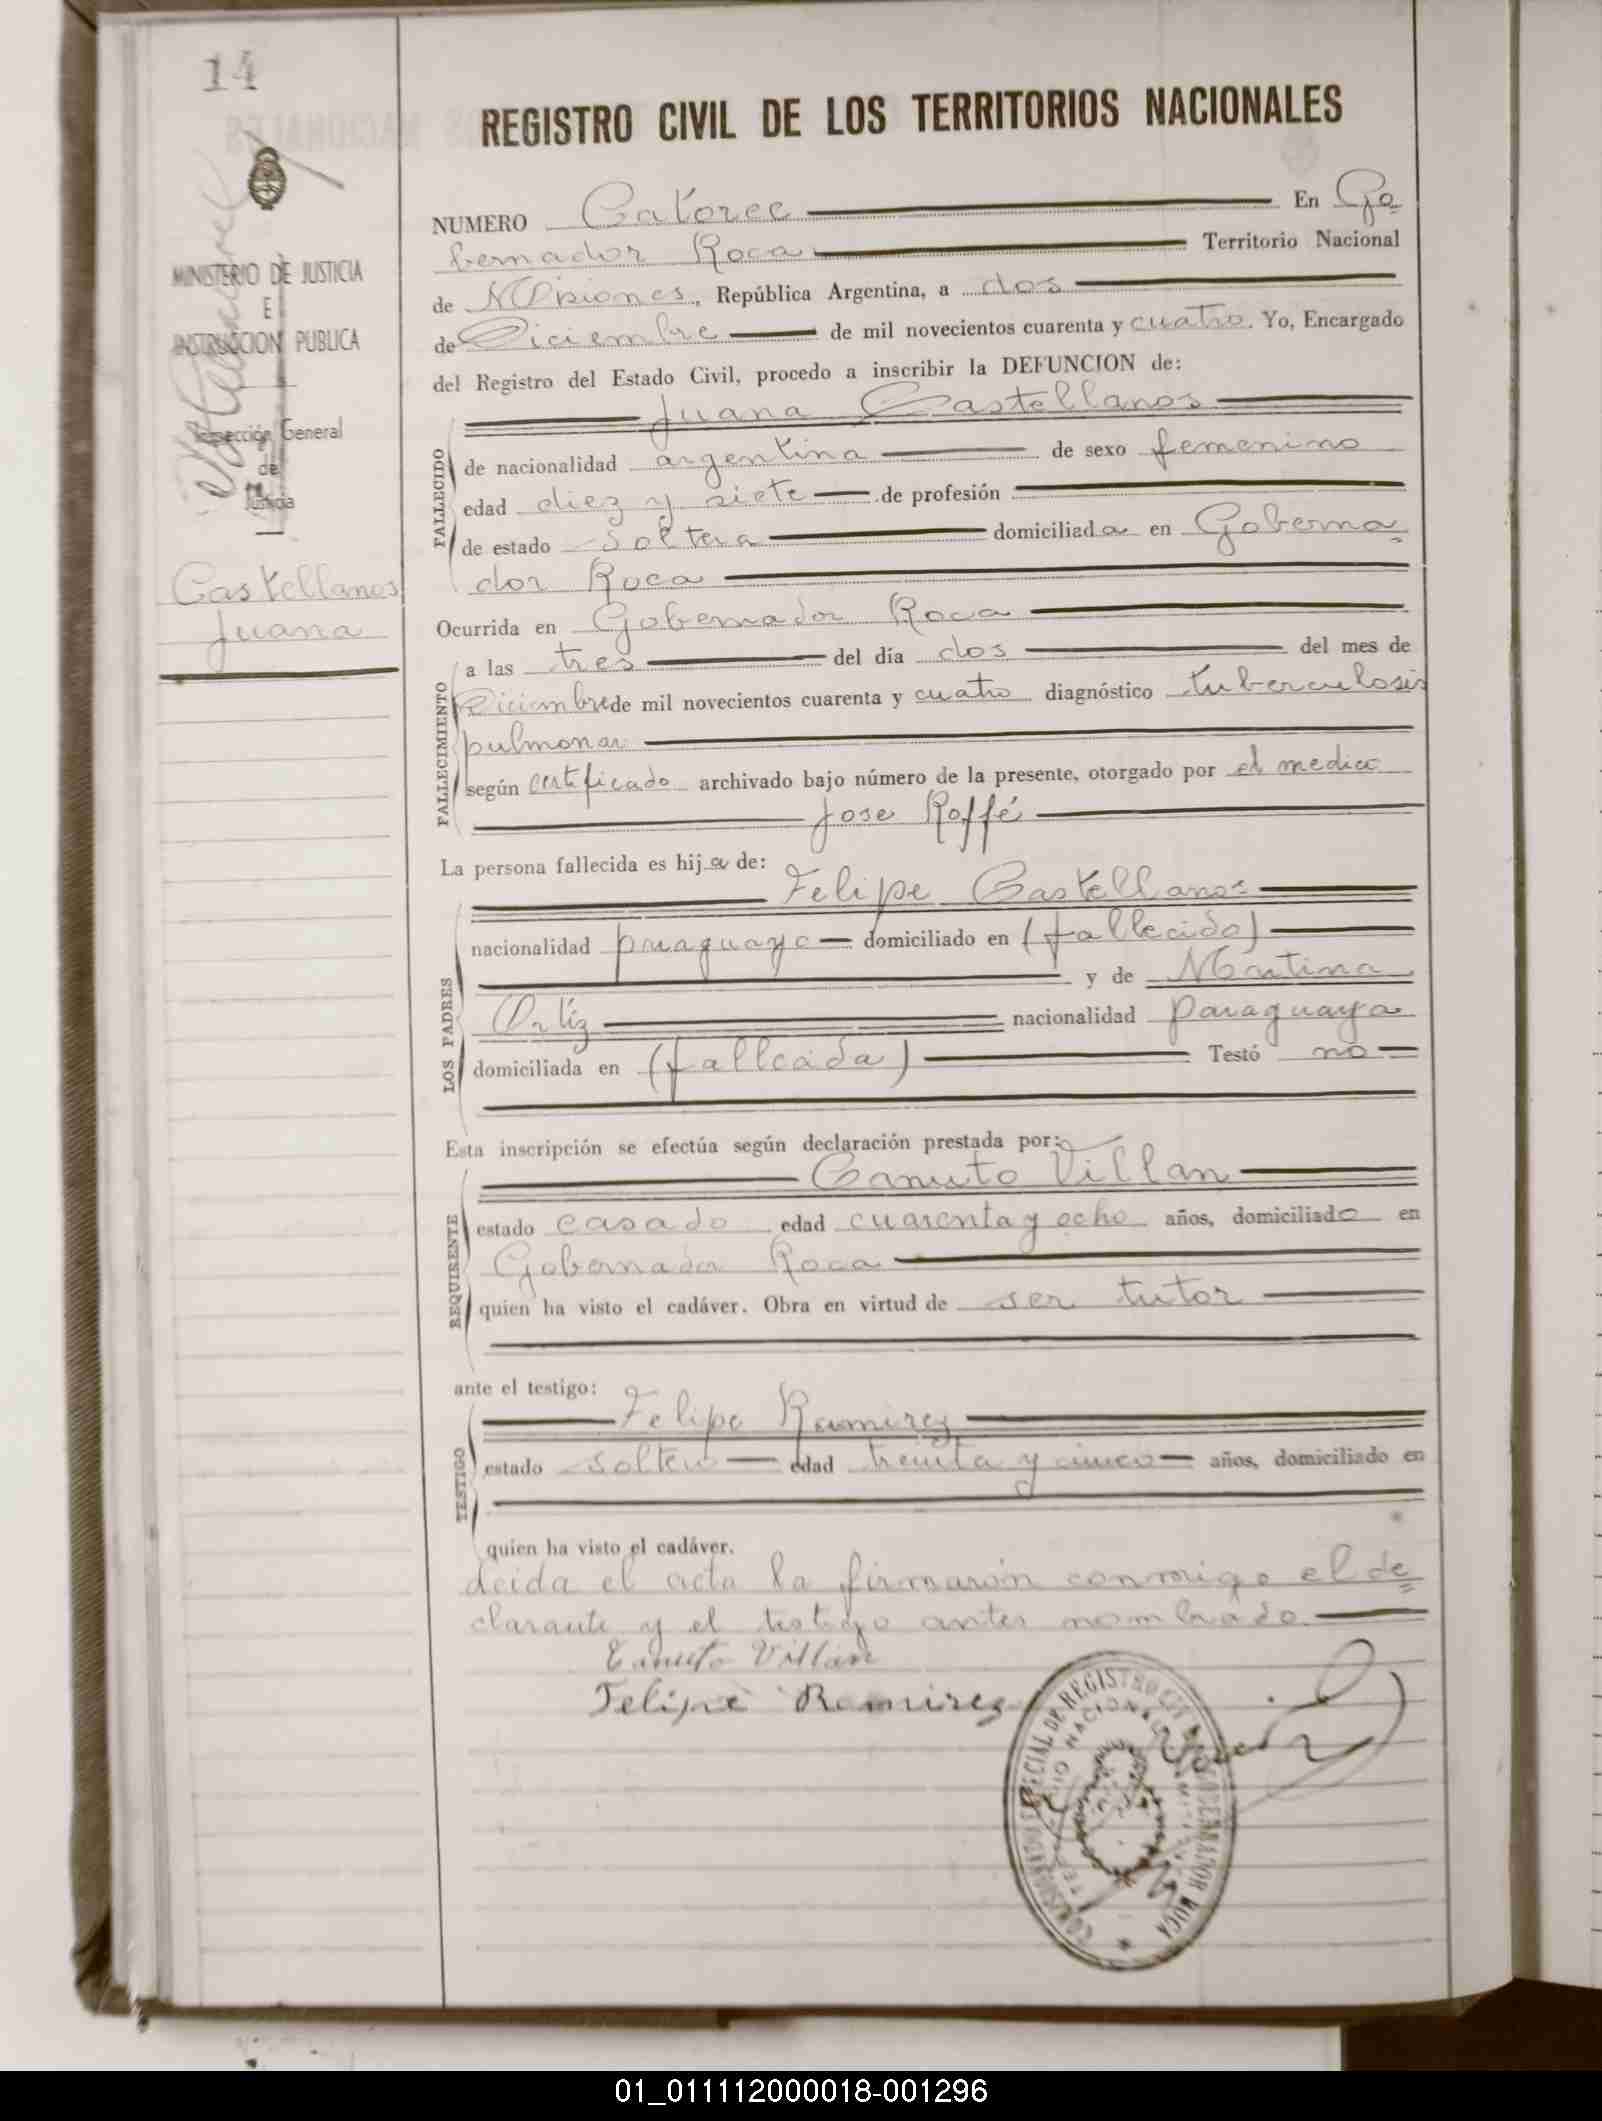 14
REGISTRO CIVIL DE LOS TERRITORIOS NACIONALES
MINISTERIO DE JUSTICIA
E
INSTRUCCION PUBLICA
Inspección General
de
Justicia
Castellanos
Juana
NUMERO Catorce En Go
bernador Roca Territorio Nacional
de Misiones, República Argentina, a dos
de Diciembre de mil novecientos cuarenta y cuatro. Yo, Encargado
del Registro del Estado Civil, procedo a inscribir la DEFUNCION de:
Juana Castellanos
FALLECIDO
de nacionalidad argentina de sexo femenino
edad diez y siete de profesión
de estado soltera domiciliada en Goberna
dor Roca
Ocurrida en Gobernador Roca
FALLECIMIENTO
a las tres del día dos del mes de
Diciembre de mil novecientos cuarenta y cuatro diagnóstico tuberculosis
pulmonar
según certificado archivado bajo número de la presente, otorgado por el medico
Jose Roffé
La persona fallecida es hija de:
Felipe Castellanos
LOS PADRES
nacionalidad paraguayo domiciliado en (fallecido)
y de Martina
Ortíz nacionalidad Paraguaya
domiciliada en (fallecida) Testó no
Esta inscripción se efectúa según declaración prestada por:
Canuto Villan
REQUIRENTE
estado casado edad cuarenta y ocho años, domiciliado en
Gobernador Roca
quien ha visto el cadáver. Obra en virtud de ser tutor
ante el testigo:
Felipe Ramirez
TESTIGO
estado soltero edad treinta y cinco años, domiciliado en
quien ha visto el cadáver.
Leida el acta la firmarón conmigo el de
clarante y el testigo antes nombrado.
Canuto Villan
Felipe Ramirez
01_011112000018-001296